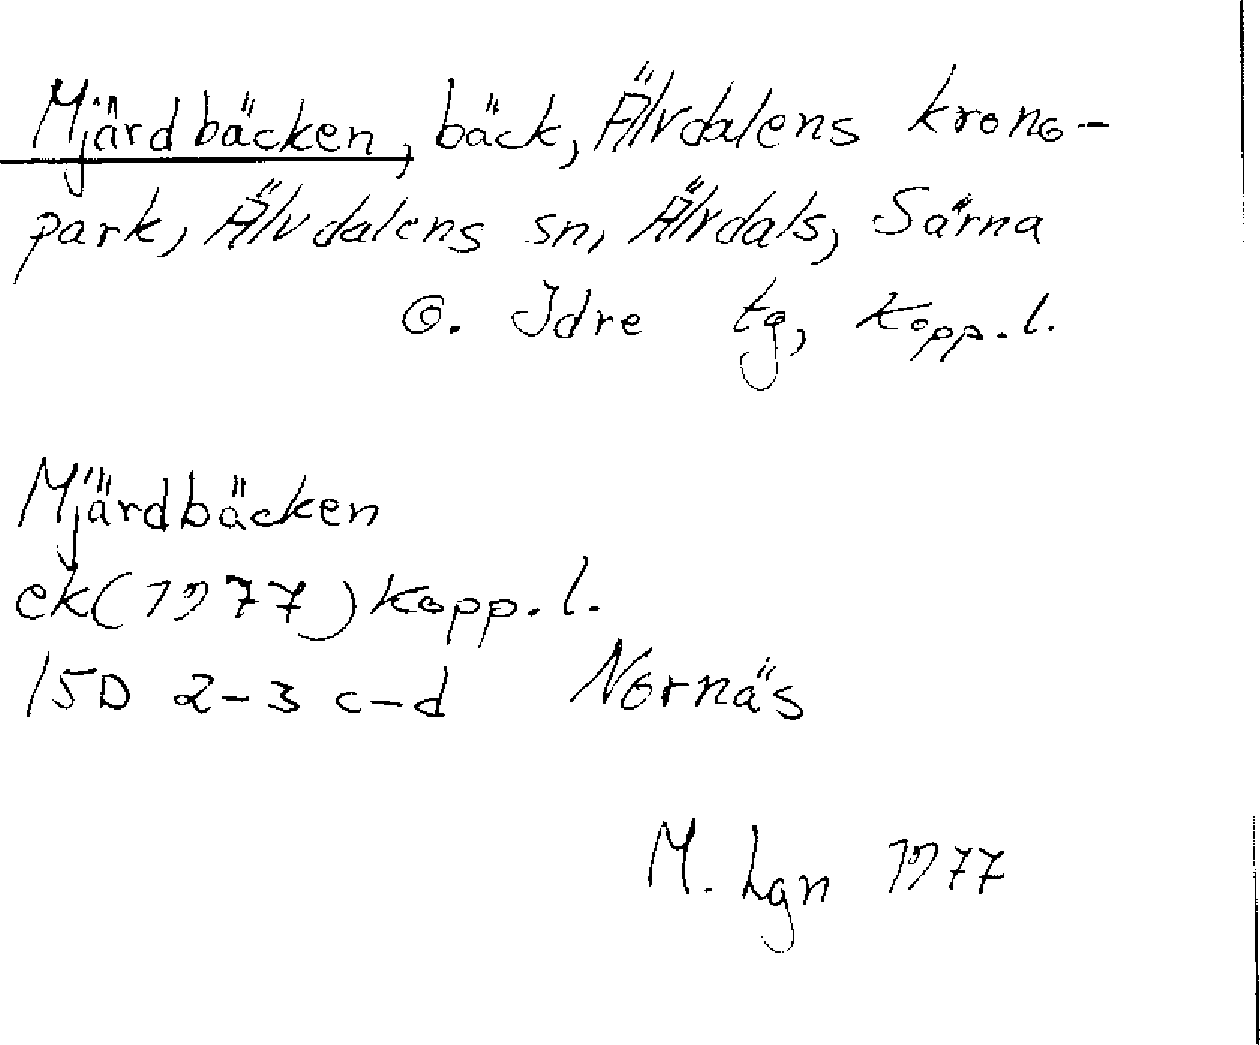 Mjärdbäcken, bäck, Älvdalens krono-
park, Älvdalens sn, Älvdals, Särna
o. Idre tg, Kopp. l.
Mjärdbäcken
ek (1977) Kopp. l.
15D 2-3 c-d Nornäs
M. Lgn 1977